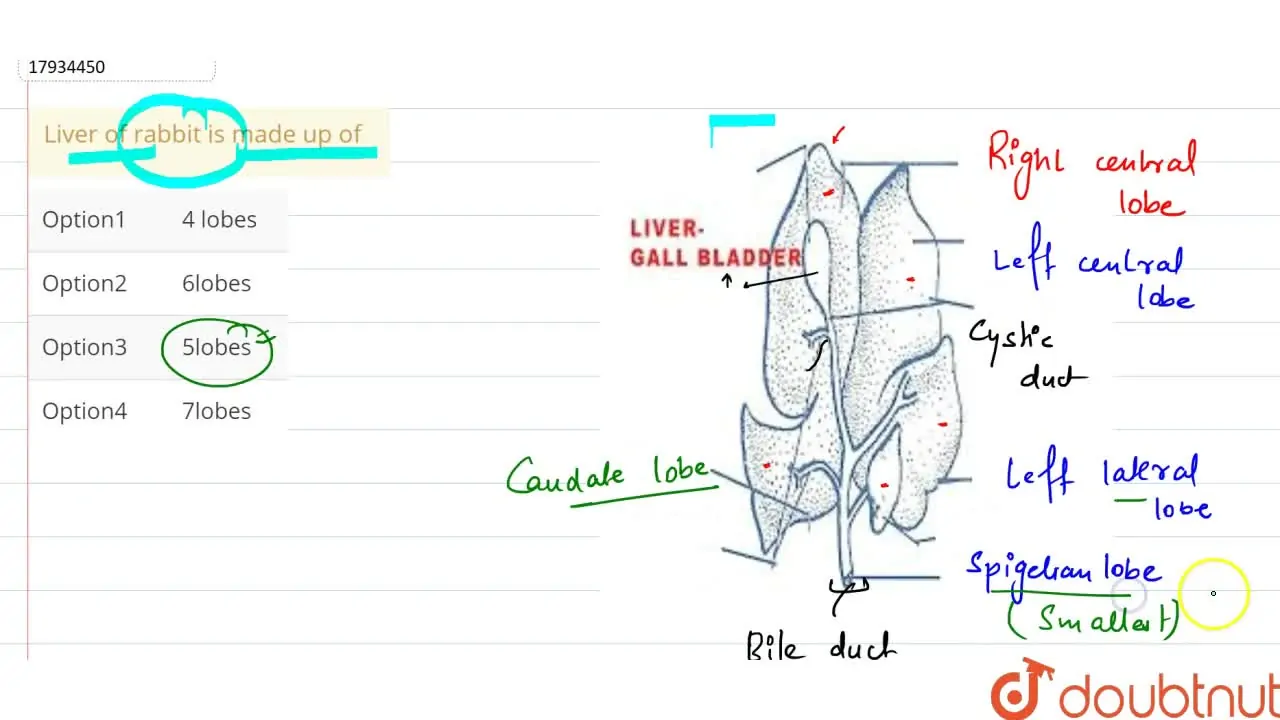 17934450
Liver of rabbit is made up of
Option1 4 lobes
Option2 6lobes
Option3 5lobes
Option4 7lobes
LIVER-
GALL BLADDER
Right central
lobe
Left central
lobe
Cystic
duct
Caudate lobe
Left lateral
lobe
Spigelian lobe
(Smallest)
Bile duct
doubtnut